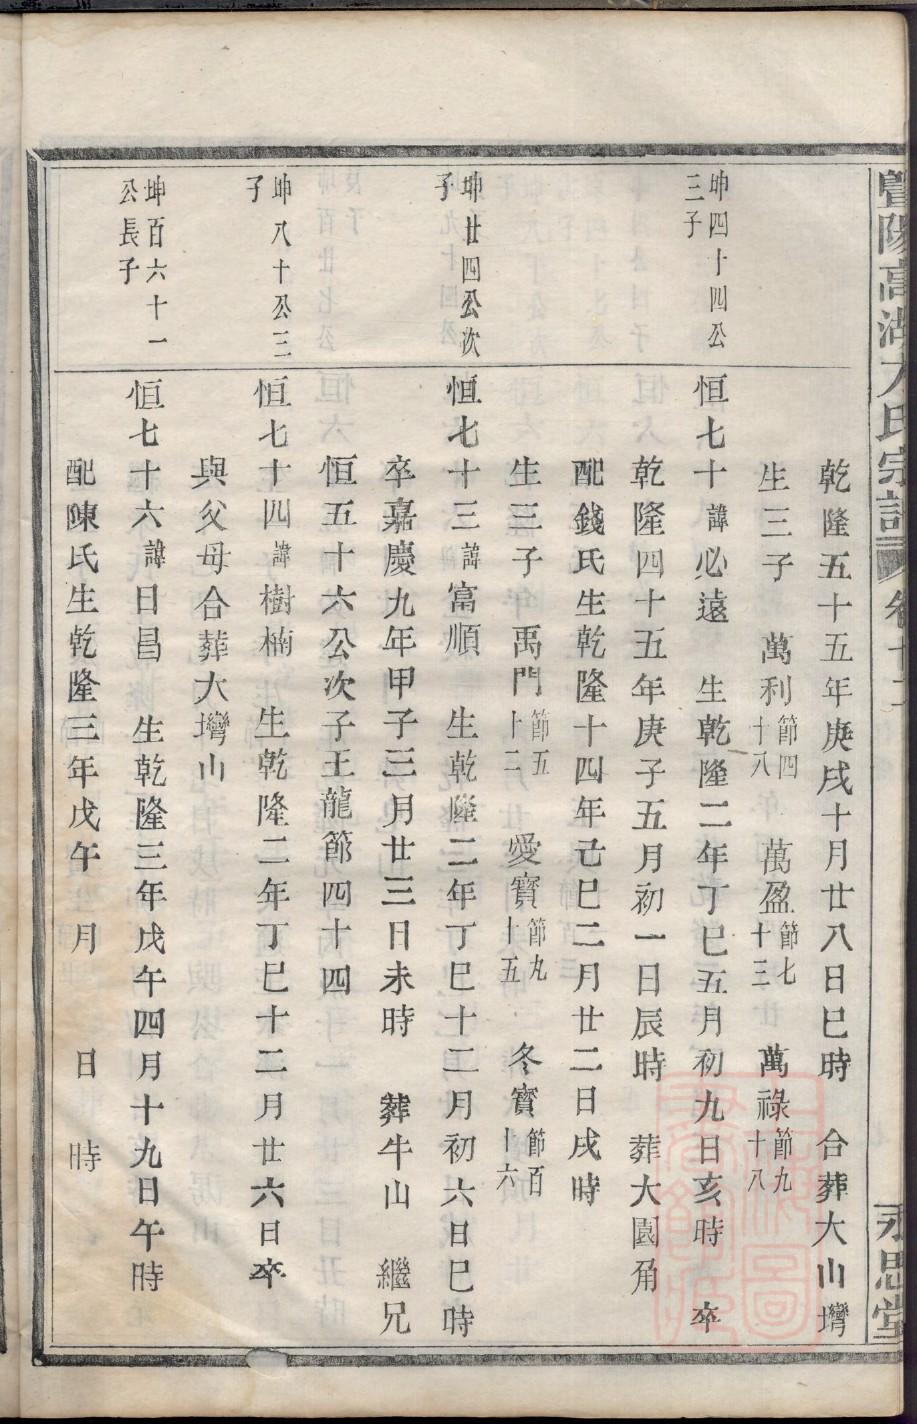 暨陽高湖方氏宗譜 卷十二 永思堂
乾隆五十五年庚戌十月廿八日巳時 合葬大山灣
生三子 萬利節四十八 萬盈節七十三 萬祿節九十八
坤四十四公三子
恒七十諱必遠 生乾隆二年丁巳五月初九日亥時 卒
乾隆四十五年庚子五月初一日辰時 葬大園角
配錢氏生乾隆十四年己巳二月廿二日戌時
生三子 禹門節五十二 愛寶節九十五 冬寶節百十六
坤廿四公次子
恒七十三諱富順 生乾隆二年丁巳十二月初六日巳時
卒嘉慶九年甲子三月廿三日未時 葬牛山 繼兄
恒五十六公次子王龍節四十四
坤八十公三子
恒七十四諱樹楠 生乾隆二年丁巳十二月廿六日卒
與父母合葬大灣山
坤百六十一公長子
恒七十六諱日昌 生乾隆三年戊午四月十九日午時
配陳氏生乾隆三年戊午 月 日 時